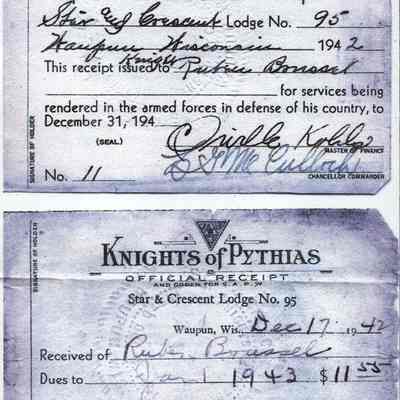 Star and Crescent Lodge No. 95
Waupun Wisconsin 1942
This receipt issued to Knight Ruben Brussel
for services being
rendered in the armed forces in defense of his country, to
December 31, 194
(SEAL)
Orville
MASTER OF FINANCE
McCulloch
CHANCELLOR COMMANDER
No. 11
SIGNATURE OF HOLDER
KNIGHTS of PYTHIAS
OFFICIAL RECEIPT
AND ORDER FOR S. A. P. W
Star & Crescent Lodge No. 95
Waupun, Wis., Dec 17 1942
Received of Ruben Brussel
Dues to Jan 1 1943 $11 55
SIGNATURE OF HOLDER